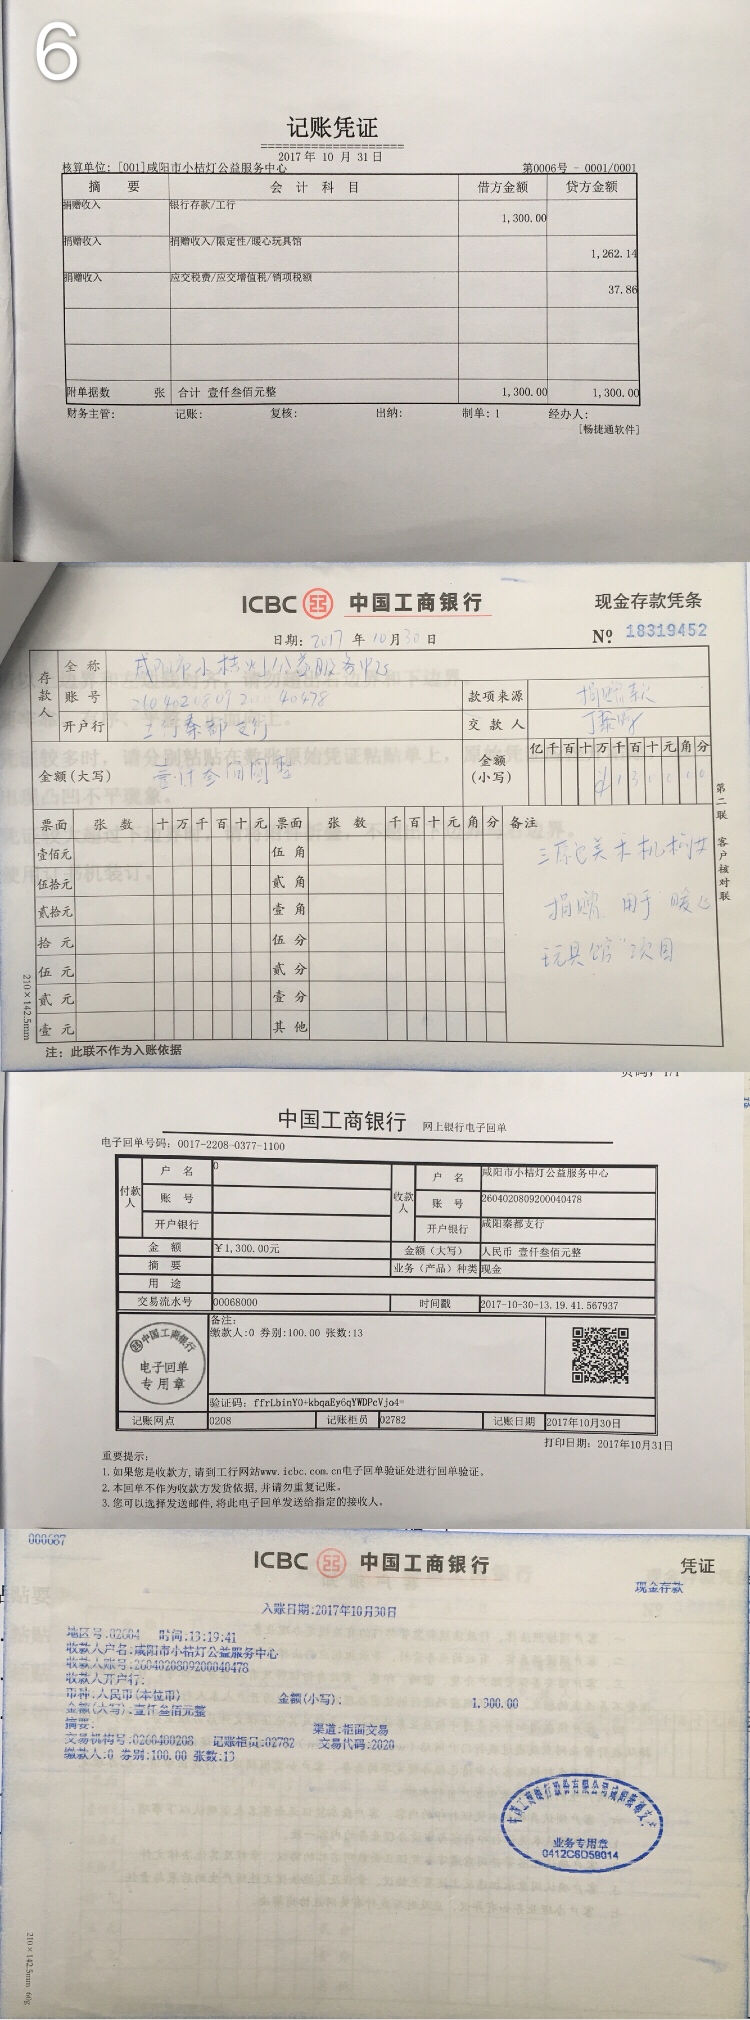 6
记账凭证
2017年 10 月 31日
核算单位: [001]咸阳市小桔灯公益服务中心 第0006号 - 0001/0001
摘 要 会 计 科 目 借方金额 贷方金额
捐赠收入 银行存款/工行 1,300.00
捐赠收入 捐赠收入/限定性/暖心玩具馆 1,262.14
捐赠收入 应交税费/应交增值税/销项税额 37.86
附单据数 张 合计 壹仟叁佰元整 1,300.00 1,300.00
财务主管: 记账: 复核: 出纳: 制单: 1 经办人:
[畅捷通软件]
ICBC 中国工商银行 现金存款凭条
日期: 2017 年 10 月 30 日 № 18319452
存款人 全 称 咸阳市小桔灯公益服务中心
账 号 款项来源 捐赠款
开户行 工行秦都支行 交 款 人
金额(大写) 壹仟叁佰圆整 金额(小写) 亿 千 百 十 万 千 百 十 元 角 分
票面 张 数 十 万 千 百 十 元 票面 张 数 千 百 十 元 角 分 备注
壹佰元 伍 角
伍拾元 贰 角
贰拾元 壹 角
拾 元 伍 分
伍 元 贰 分
贰 元 壹 分
壹 元 其 他
捐赠 用于"暖心
玩具馆"项目
第二联 客户核对联
210×142.5mm
注: 此联不作为入账依据
页码: 1/1
中国工商银行 网上银行电子回单
电子回单号码: 0017-2208-0377-1100
付款人 户 名 0 收款人 户 名 咸阳市小桔灯公益服务中心
账 号 账 号 2604020809200040478
开户银行 开户银行 咸阳秦都支行
金 额 ¥1,300.00元 金额(大写) 人民币 壹仟叁佰元整
摘 要 业务(产品)种类 现金
用 途
交易流水号 00068000 时间戳 2017-10-30-13.19.41.567937
中国工商银行
电子回单
专用章
备注:
缴款人:0 券别:100.00 张数:13
验证码: ffrLbinYO+kbqaEy6qYWDPcVjo4=
记账网点 0208 记账柜员 02782 记账日期 2017年10月30日
打印日期: 2017年10月31日
重要提示:
1.如果您是收款方,请到工行网站www.icbc.com.cn电子回单验证处进行回单验证。
2.本回单不作为收款方发货依据,并请勿重复记账。
3.您可以选择发送邮件,将此电子回单发送给指定的接收人。
000687
ICBC 中国工商银行 凭证
现金存款
入账日期:2017年10月30日
地区号:02604 时间:13:19:41
收款人户名:咸阳市小桔灯公益服务中心
收款人账号:2604020809200040478
收款人开户行:
币种:人民币(本位币) 金额(小写): 1,300.00
金额(大写):壹仟叁佰元整
摘要: 渠道:柜面交易
交易机构号:0260400208 记账柜员:02782 交易代码:2020
缴款人:0 券别:100.00 张数:13
业务专用章
0412C6D59014
210×142.5mm 60g